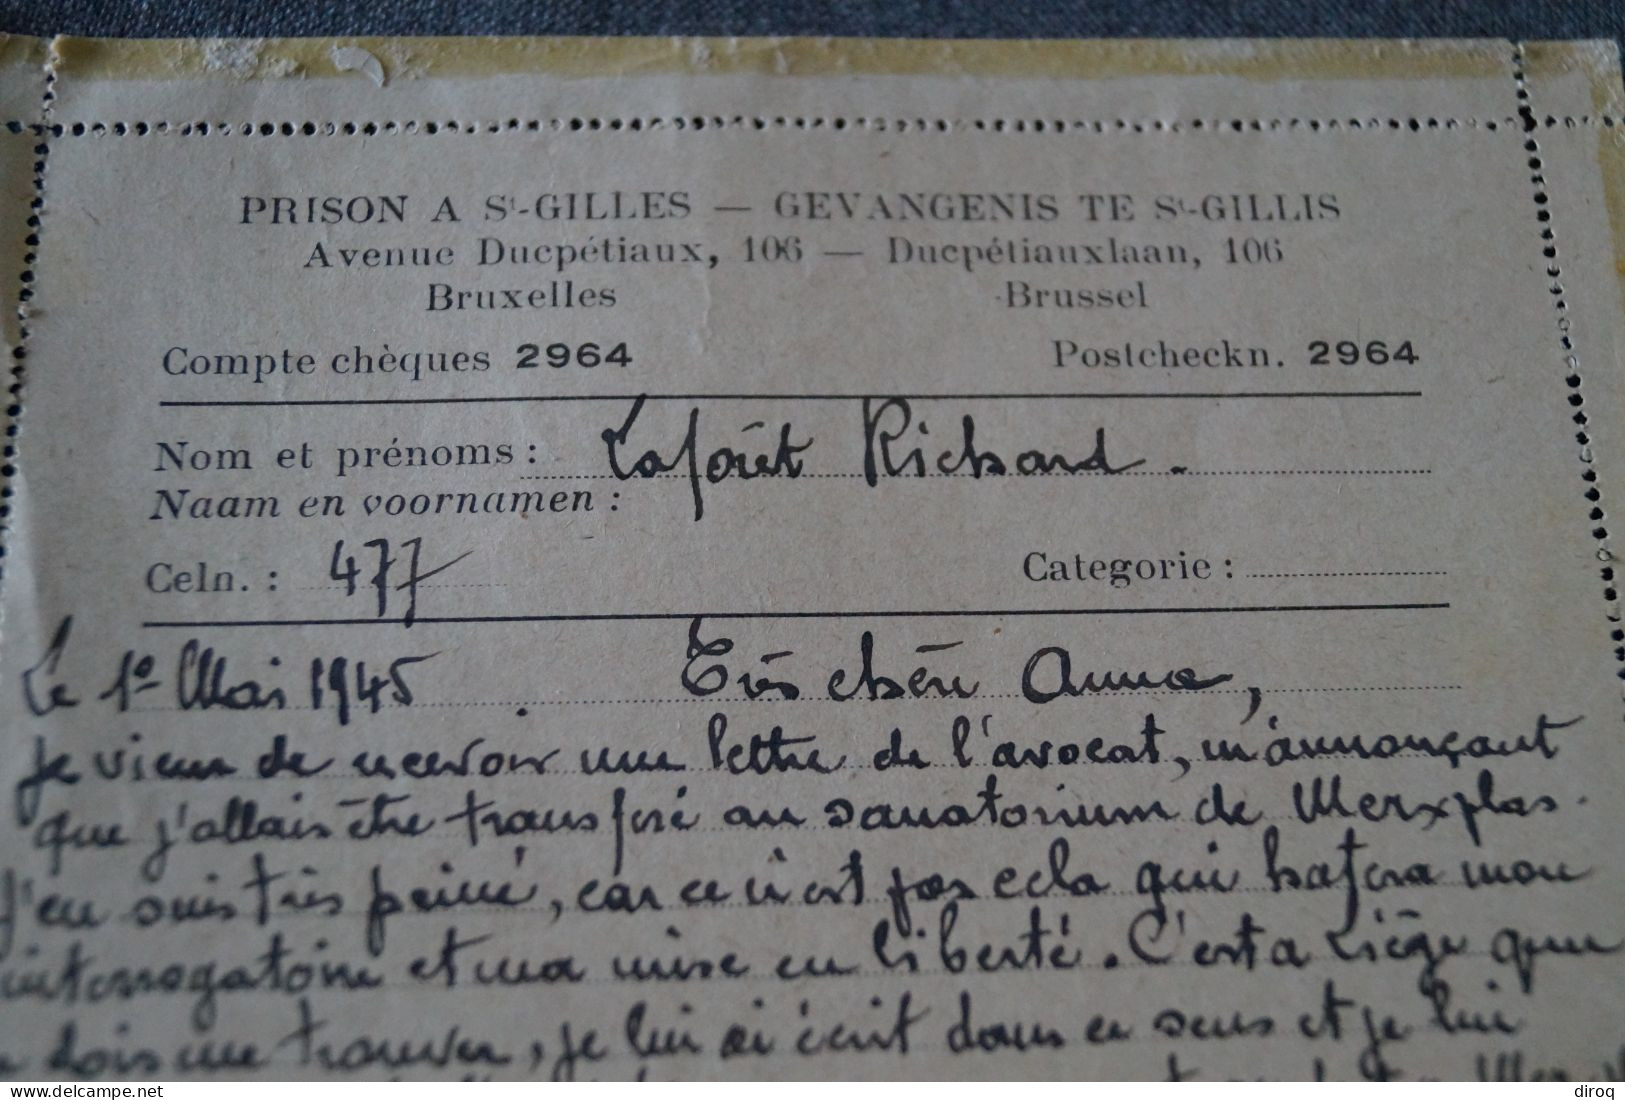 PRISON A St-GILLES — GEVANGENIS TE St-GILLIS
Avenue Ducpétiaux, 106 — Ducpétiauxlaan, 106
Bruxelles Brussel
Compte chèques 2964 Postcheckn. 2964
Nom et prénoms : Laforêt Richard.
Naam en voornamen :
Celn. : 477 Categorie :
Le 1º Mai 1945 Très chère Anna,
je viens de recevoir une lettre de l'avocat, m'annonçant
que j'allais être transféré au sanatorium de Merxplas.
J'en suis très peiné, car ce n'est pas cela qui hatera mon
interrogatoire et ma mise en liberté. C'est a Liège que
dois me trouver, je lui ai écrit dans ce sens et je lui
delcampe.net
diroq